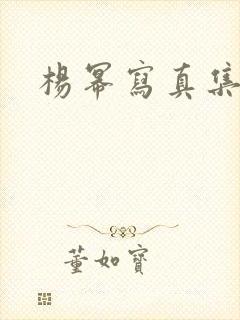 楊冪寫真集
董如寶